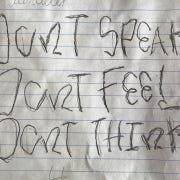 DON'T SPEAK
DON'T FEEL
DON'T THINK